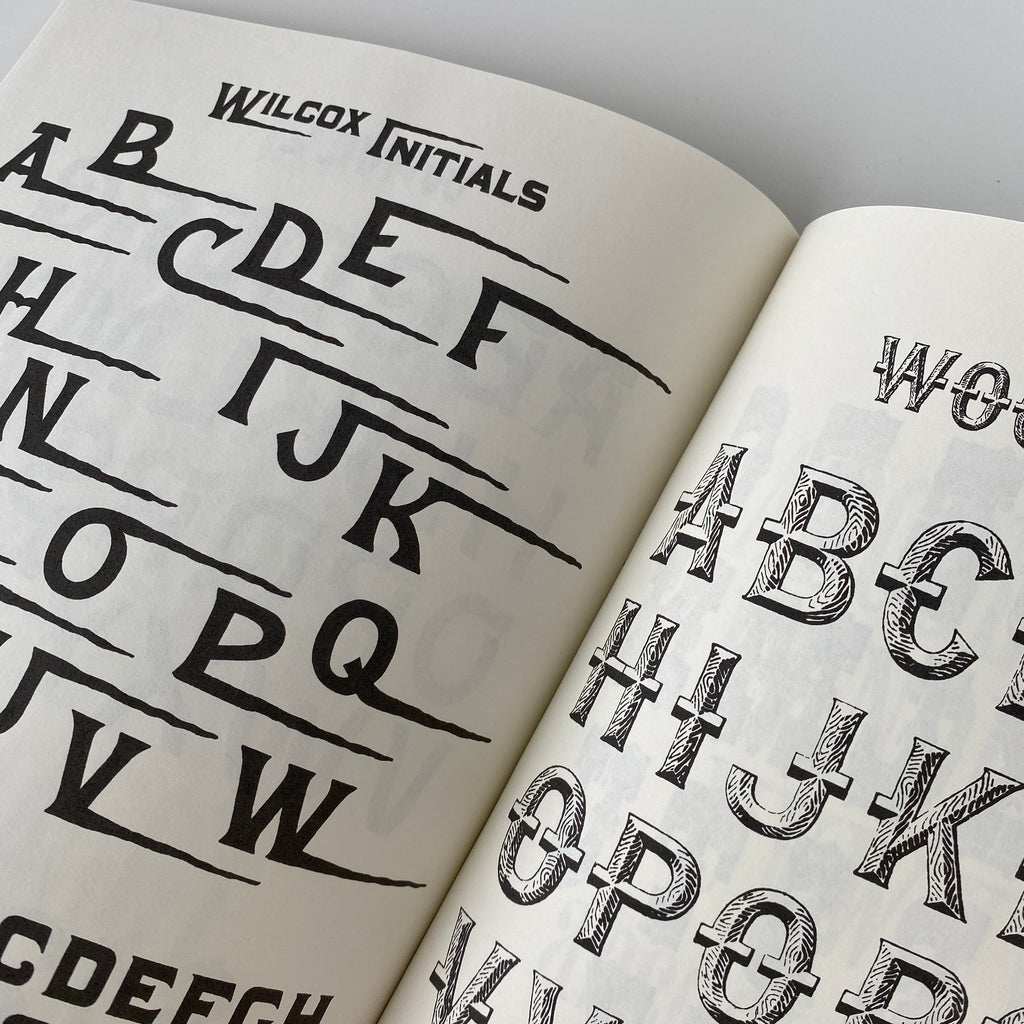 Wilcox Initials
A B C D E F
H I J K
N O P Q
V W
CDEFGH
WOO
A B C
H I J K
O P Q R